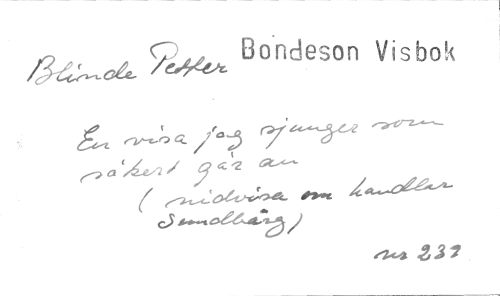 Blinde Petter Bondeson Visbok
En visa jag sjunger som
säkert går an
( nidvisa om handlar
Sundbärg)
nr 232